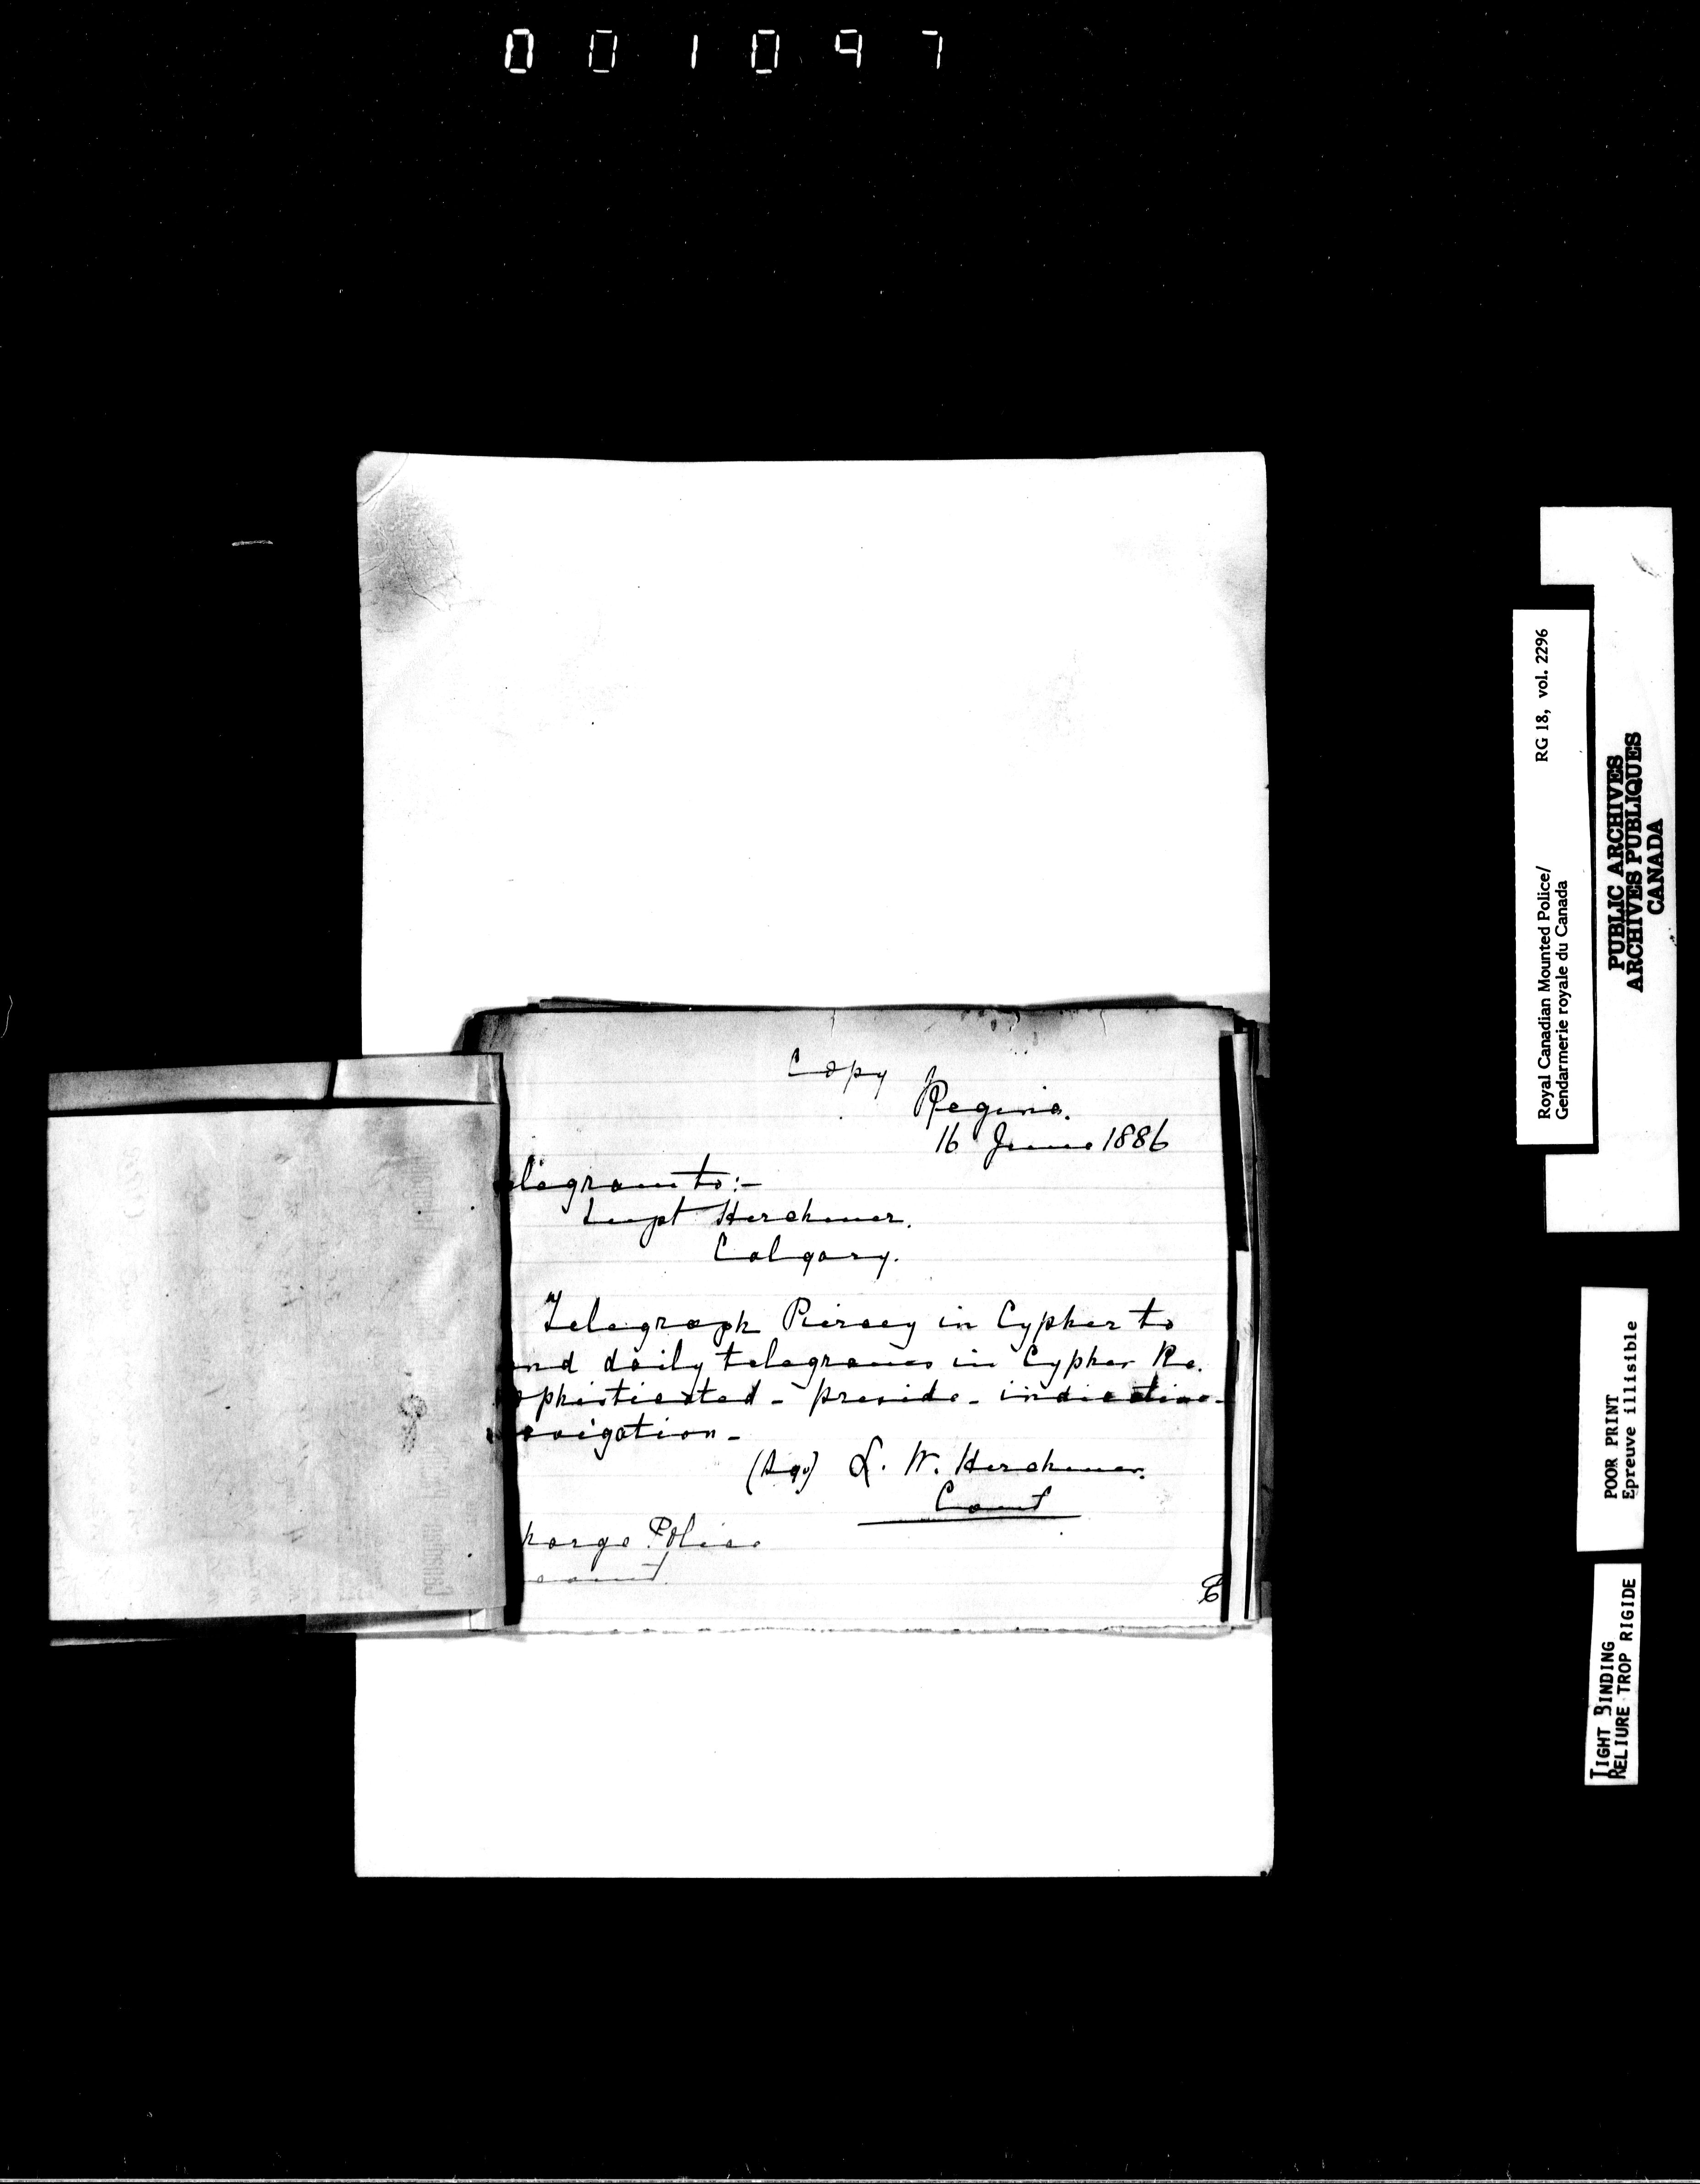 001097
Copy
Regina.
16 June 1886
elegram to:-
Supt Herchmer.
Calgary.
Telegraph Piercy in Cypher to
end daily telegrams in Cypher Re.
ophisticated - preside - indicative -
avigation -
(Sgd) L. W. Herchmer.
Comt
harge Police
ccount.
RG 18, vol. 2296
Royal Canadian Mounted Police/
Gendarmerie royale du Canada
PUBLIC ARCHIVES
ARCHIVES PUBLIQUES
CANADA
POOR PRINT
Epreuve illisible
TIGHT BINDING
RELIURE TROP RIGIDE